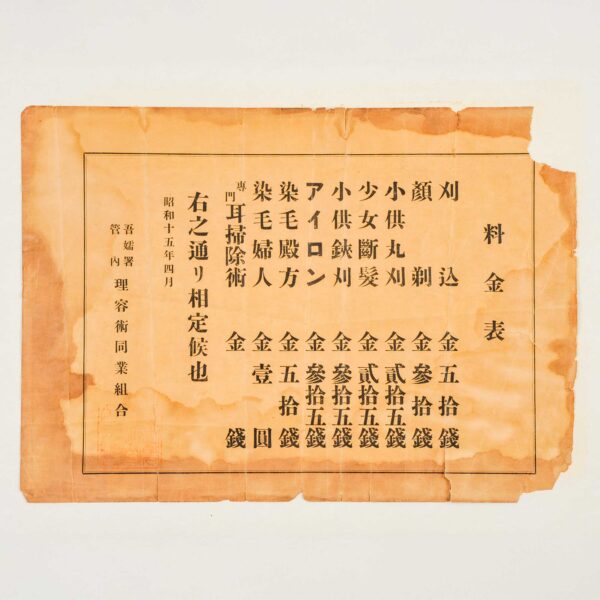 料金表
刈込 金五拾錢
顏剃 金參拾錢
小供丸刈 金貳拾五錢
少女斷髮 金貳拾五錢
小供鋏刈 金參拾五錢
アイロン 金參拾五錢
染毛殿方 金五拾錢
染毛婦人 金壹圓
專門耳掃除術 金 錢
右之通リ相定候也
昭和十五年四月
吾嬬署管内 理容術同業組合